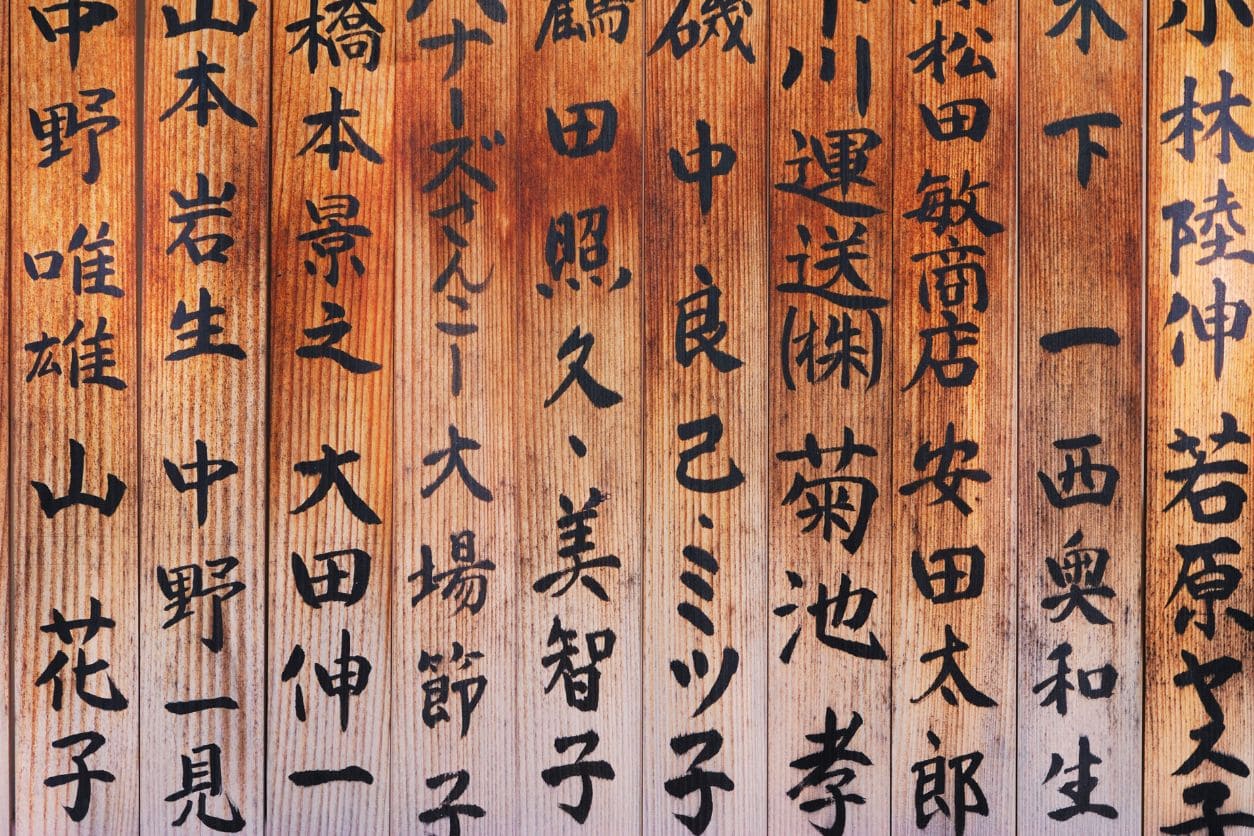 小林陸伸 若原ヤス子
木下 一 西奥和生
松田敏商店 安田太郎
川運送(株) 菊池 孝
磯中良己・ミツ子
鶴田照久、美智子
ナーズさんこー 大場節子
橋本景之 大田伸一
山本岩生 中野一見
中野唯雄 山 花子